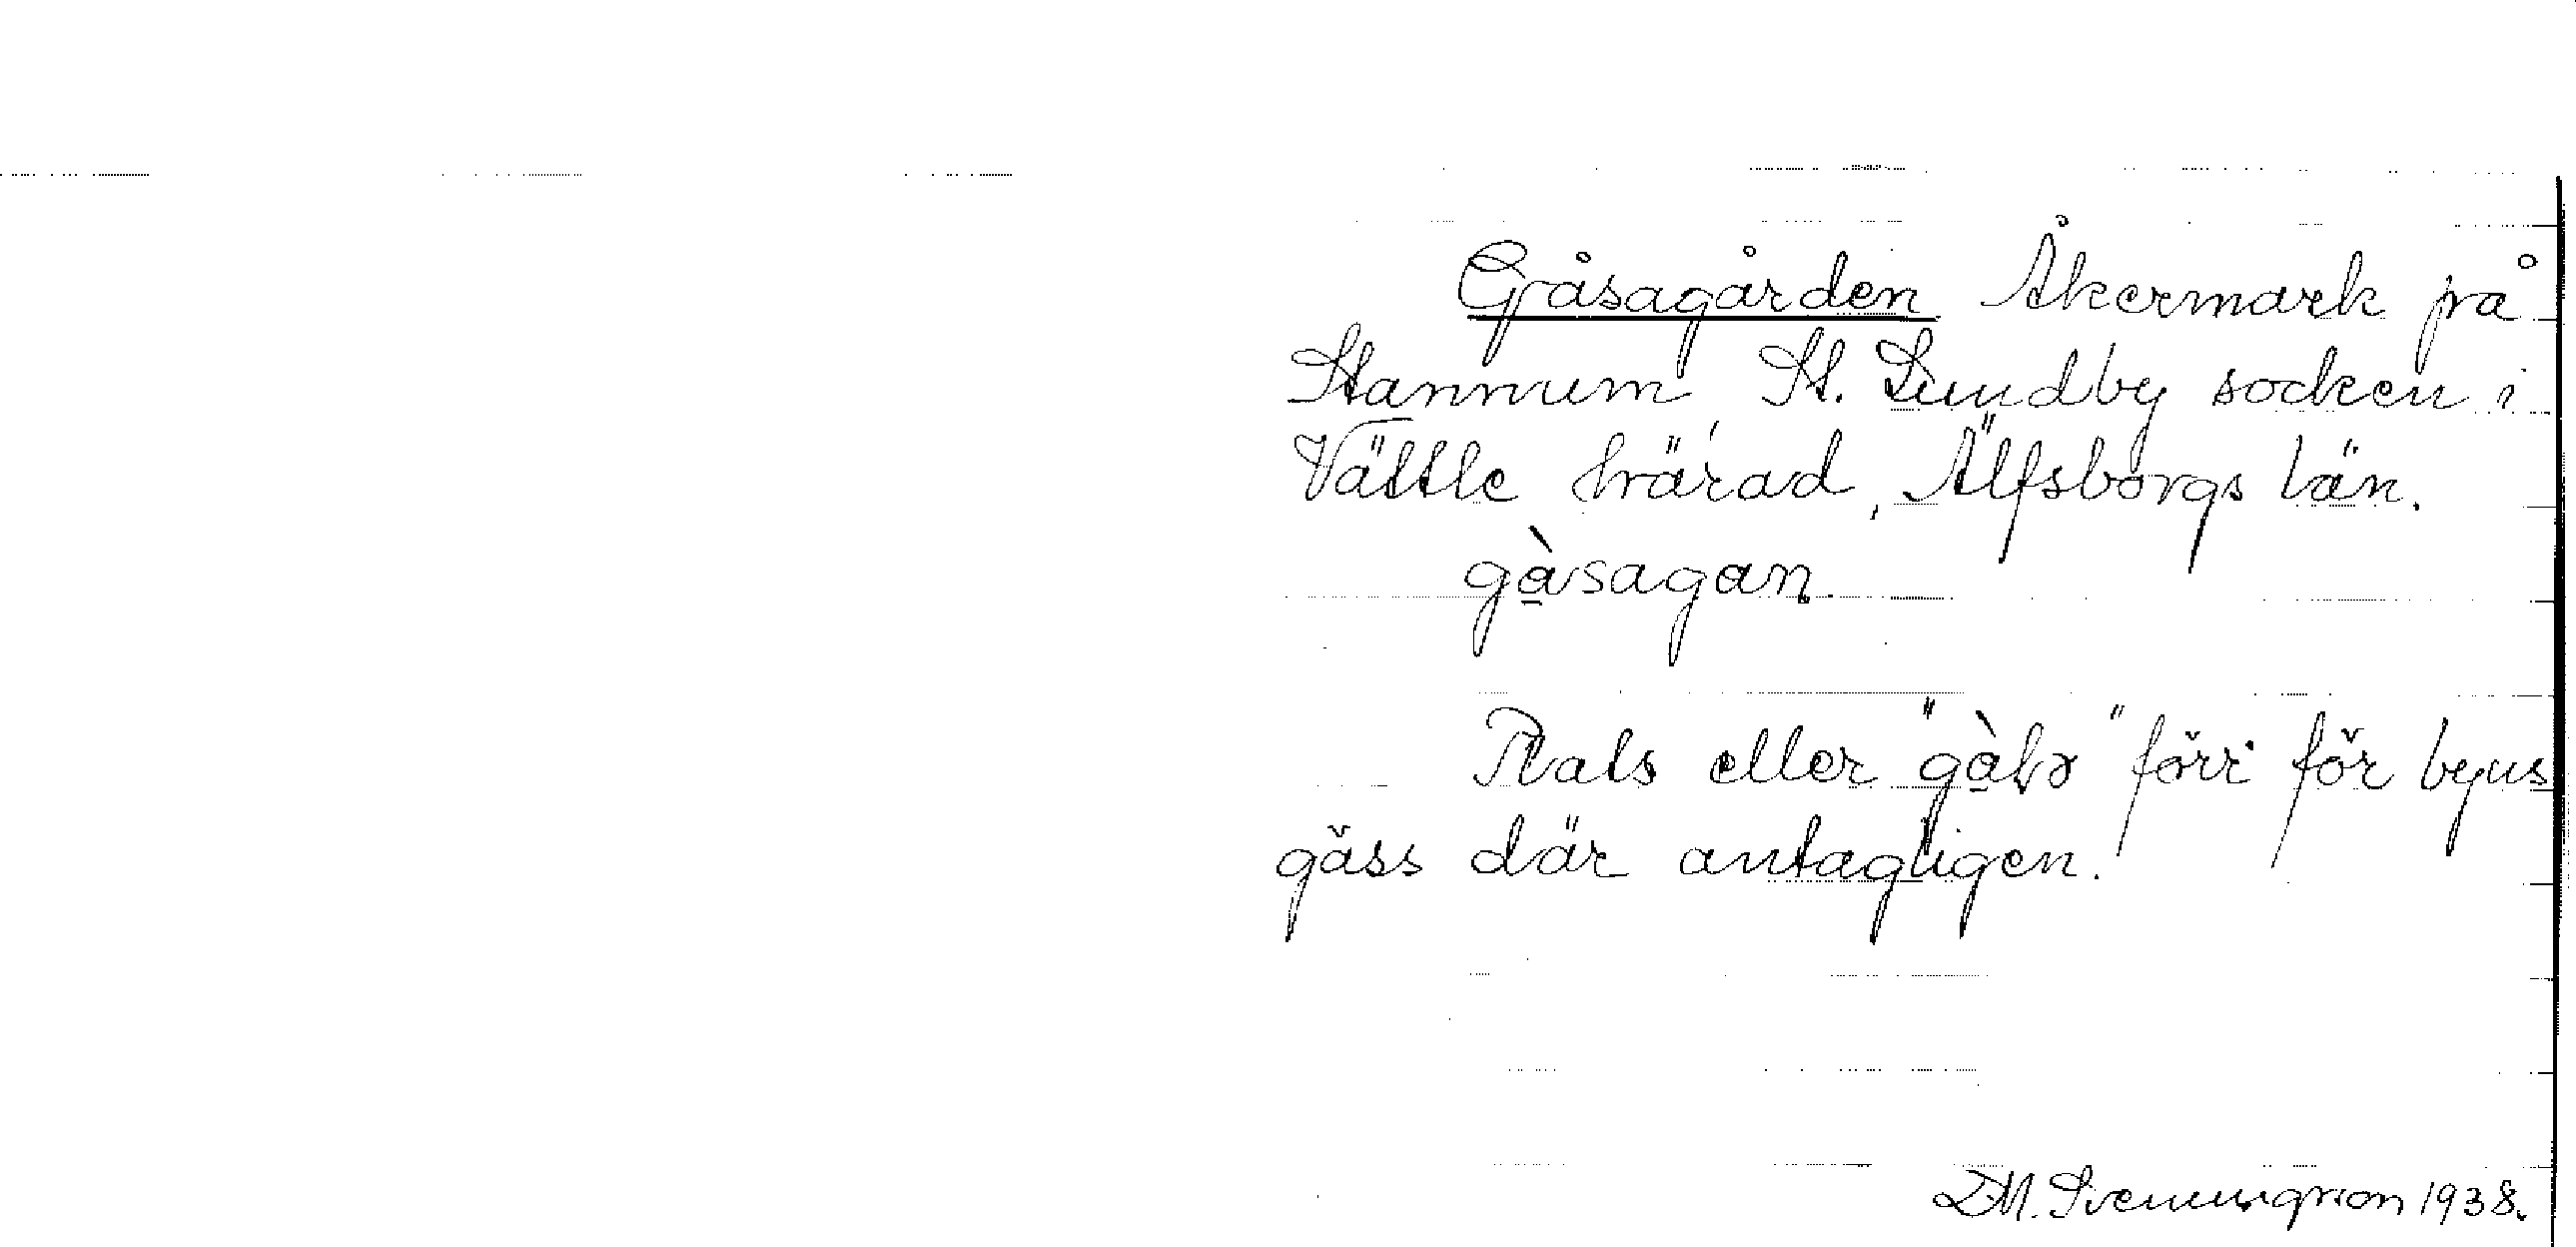 Gåsagården Åkermark på
Stannum, St. Lundby socken i
Vättle härad, Älfsborgs län.
gàsagan.
Plats eller "gàlɘ" förr för byns
gäss där antagligen.
D.M. Svenningson 1938.